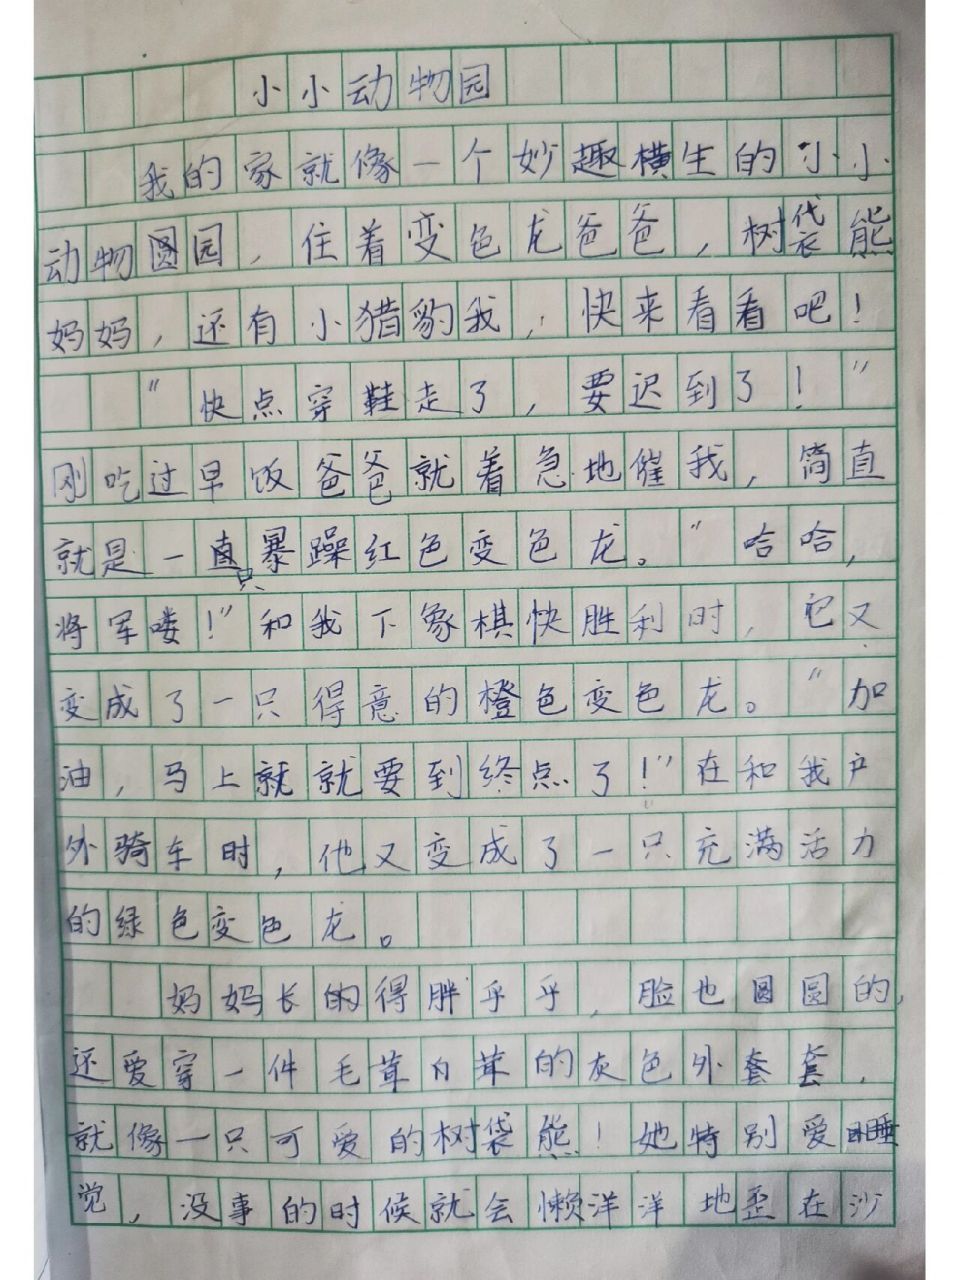 小小动物园
我的家就像一个妙趣横生的小小
动物圆园，住着变色龙爸爸，树袋熊
妈妈，还有小猎豹我，快来看看吧！
“快点穿鞋走了，要迟到了！”
刚吃过早饭爸爸就着急地催我，简直
就是一直只暴躁红色变色龙。“哈哈，
将军喽！”和我下象棋快胜利时，它又
变成了一只得意的橙色变色龙。“加
油，马上就就要到终点了！”在和我户
外骑车时，他又变成了一只充满活力
的绿色变色龙。
妈妈长的得胖乎乎，脸也圆圆的，
还爱穿一件毛茸茸的灰色外套套，
就像一只可爱的树袋熊！她特别爱睡
觉，没事的时候就会懒洋洋地歪在沙